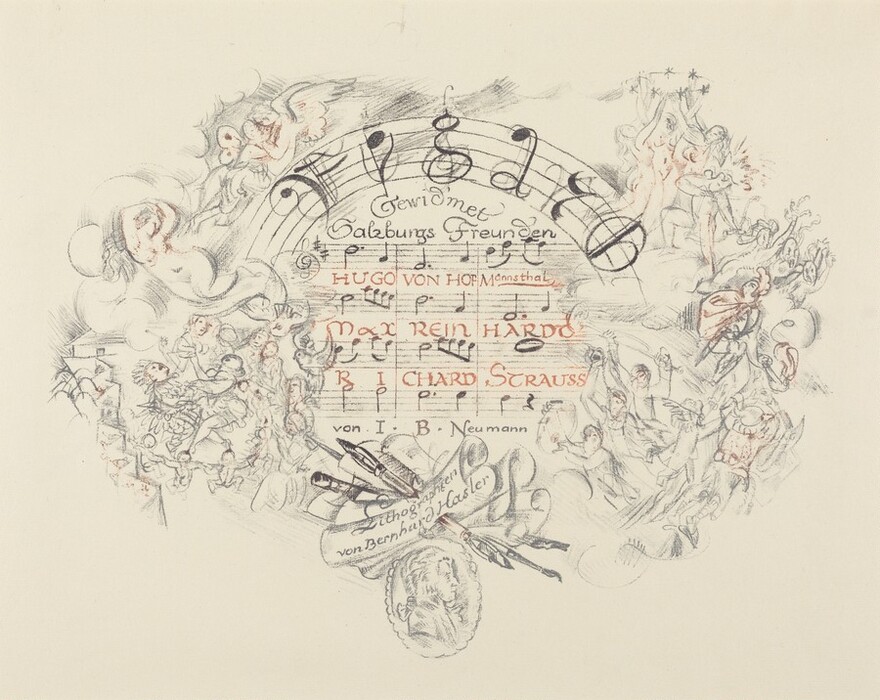 Figaro
Gewidmet
Salzburgs Freunden
HUGO VON HOFMannsthal
MAX REIN HARDT
R I CHARD STRAUSS
von I. B. Neumann
Lithographien
von Bernhard Hasler